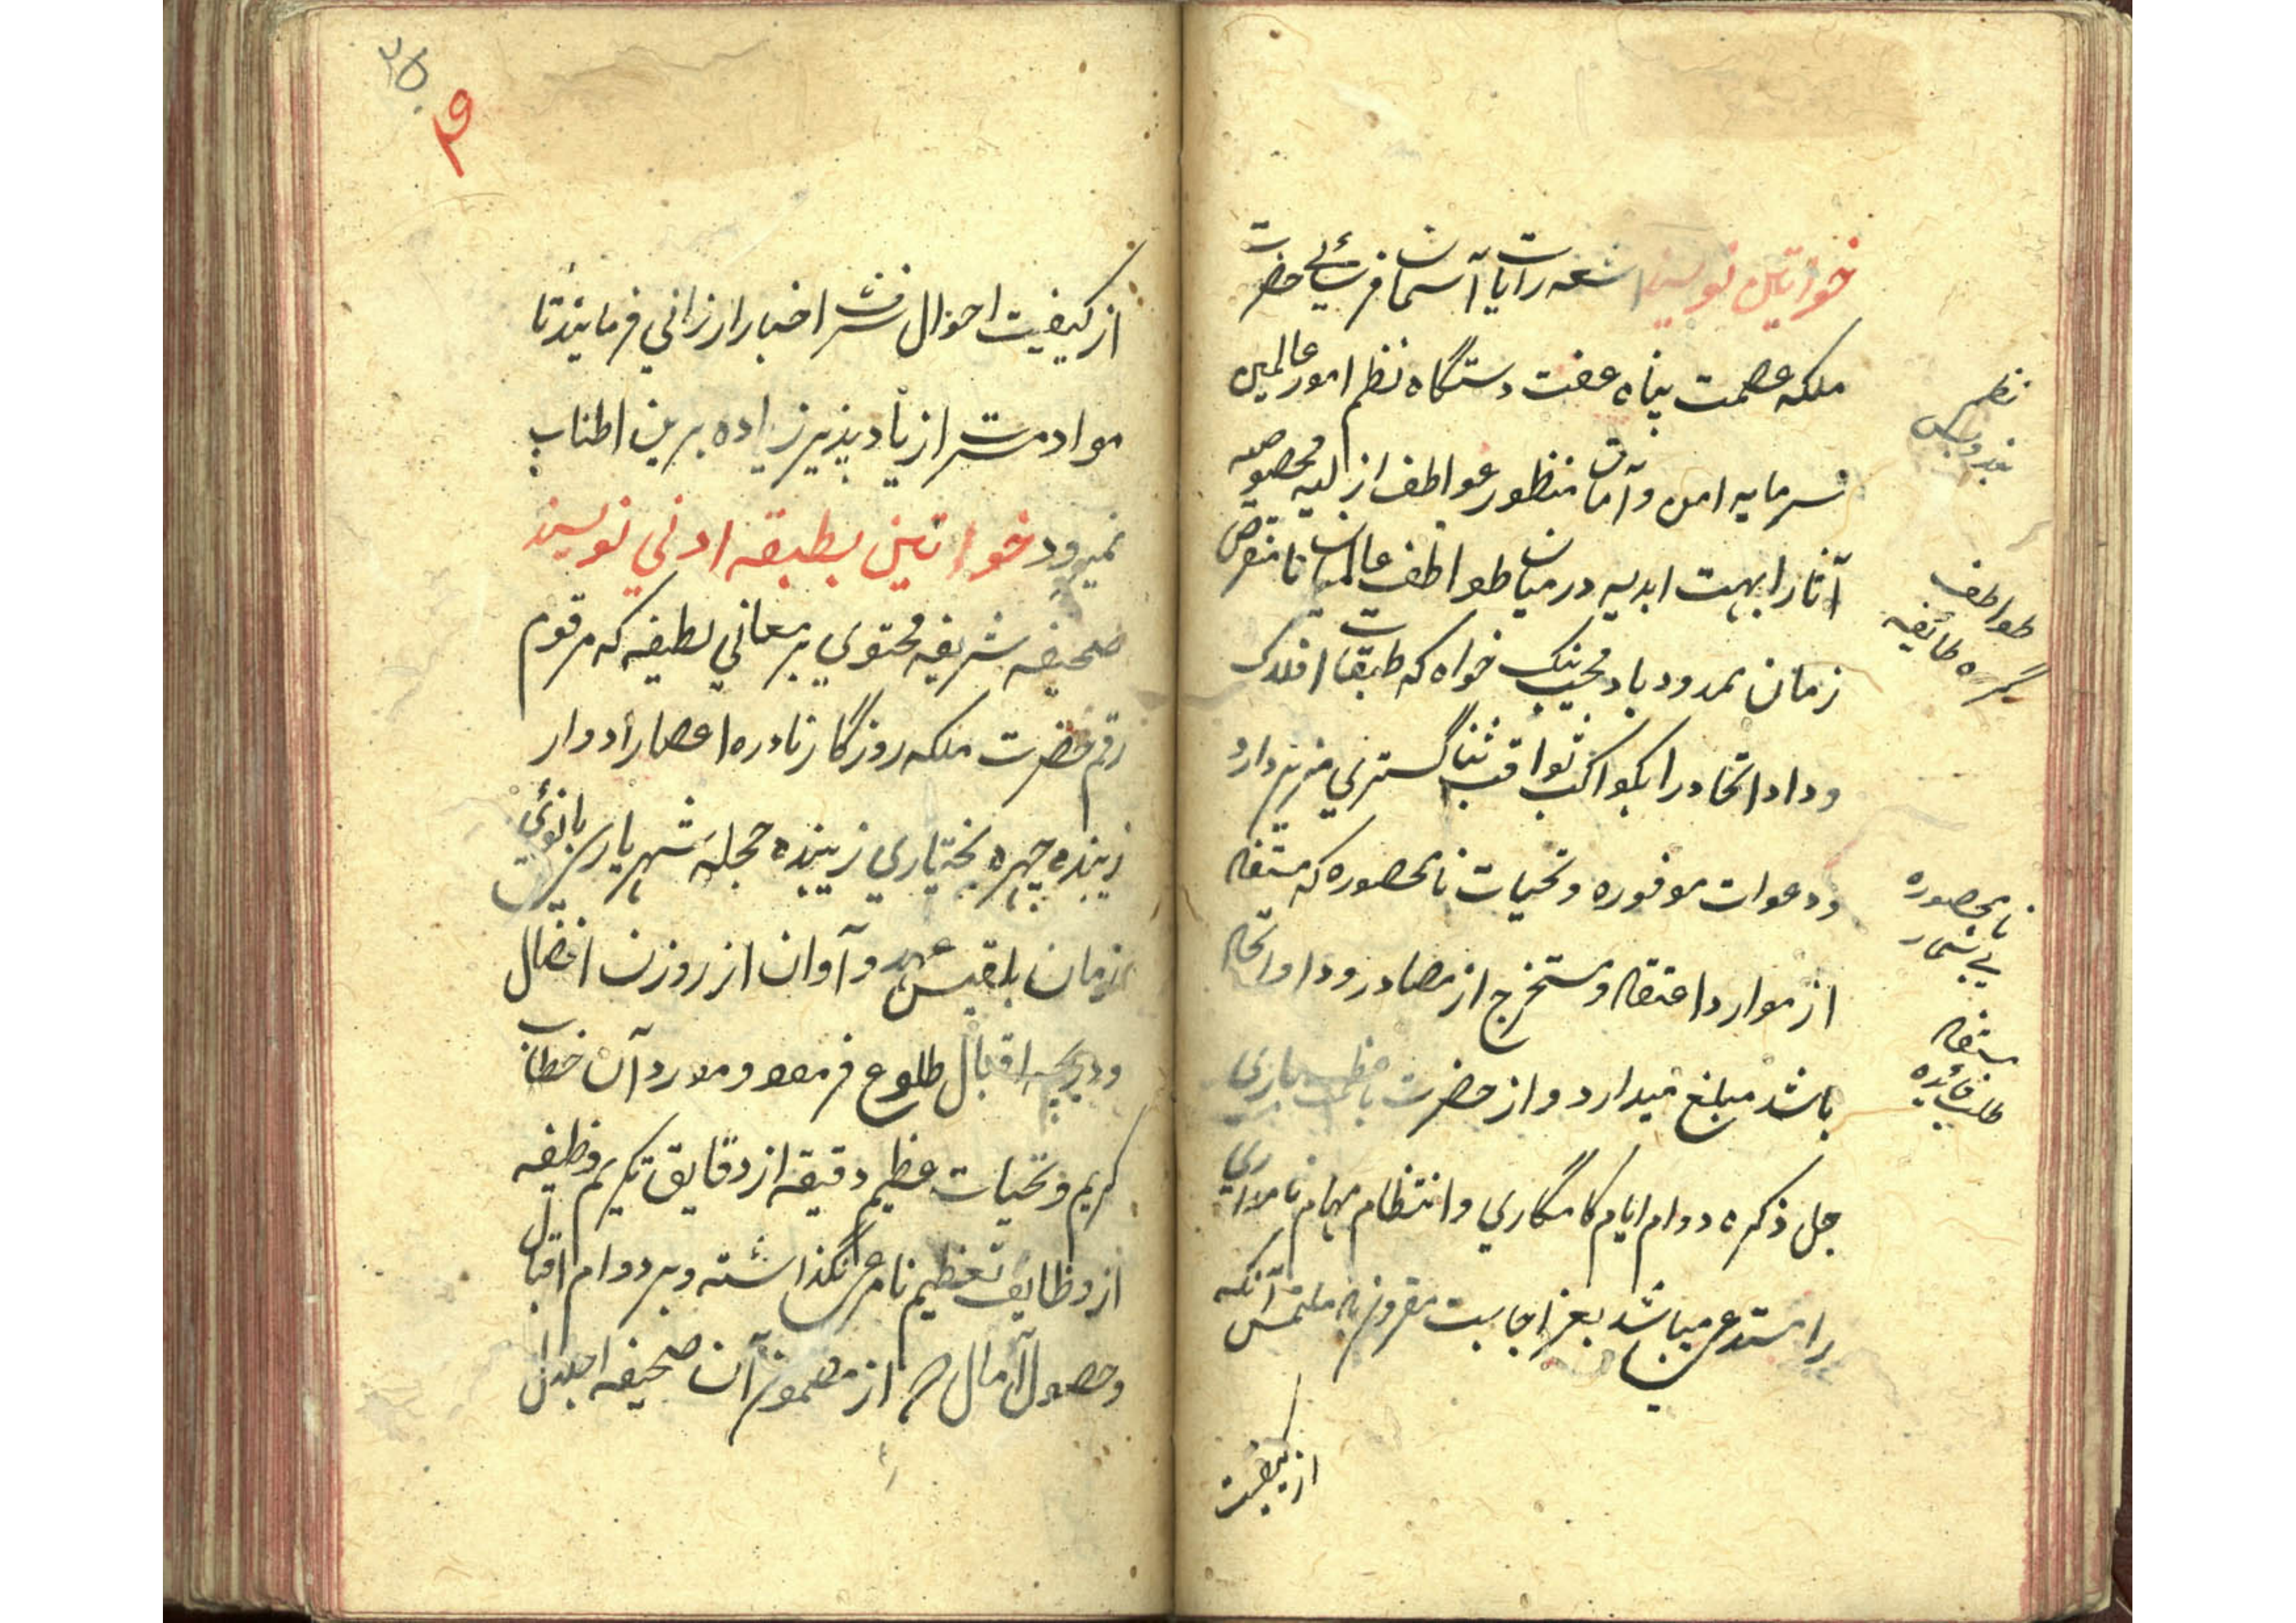 خواتین نویسند اشعه رایات آسمان فرسائی حضرت
ملکه عصمت پناه عفت دستگاه نظم امور عالمین
سرمایه امن و آمان منظور عواطف ازلیه مخصوصه
آثار ابهت ابدیه در میان طوایف عالمیان نا منقرض
زمان ممدود باد محب نیک خواه که طبقات افلاک
وداد اتحاد را بکواکب ثواقب ثنا گستری مزین دارد
و دعوات موفوره و تحیات نامحصوره که مستفاد
از موارد اعتقاد و مستخرج از مصادر وداد و اتحاد
باشد مبلغ میدارد و از حضرت باری
جل ذکره دوام ایام کامگاری و انتظام مهام نامداری
را مستدعی میباشد بعز اجابت مقرون باد ملتمس آنکه
از کیفیت
نظم
طوایف
گروه طائفه
نامحصوره
بی شمار
مستفاد
طلب فائده
۲۵
۴۹
از کیفیت احوال شرف اخبار ارزانی فرمایند تا
مواد مسرت ازیاد پذیرد زیاده برین اطناب
نمیرود خواتین بطبقه ادنی نویسند
صحیفه شریفه محتوی بر معانی لطیفه که مرقوم
رقم حضرت ملکه روزگار نادره اعصار ادوار
زیبنده چهره بختیاری زیبنده حجله شهریاری بانوی
زمان بلقیس عهد و آوان از روزن افضال
و دریچه اقبال طلوع فرمود و مورد آن خطاب
کریم و تحیات عظیم دقیقه از دقایق تکریم وظیفه
از وظایف تعظیم نامرعی نگذاشته و بر دوام اقبال
و حصول آمال از مضمون آن صحیفه اجلال